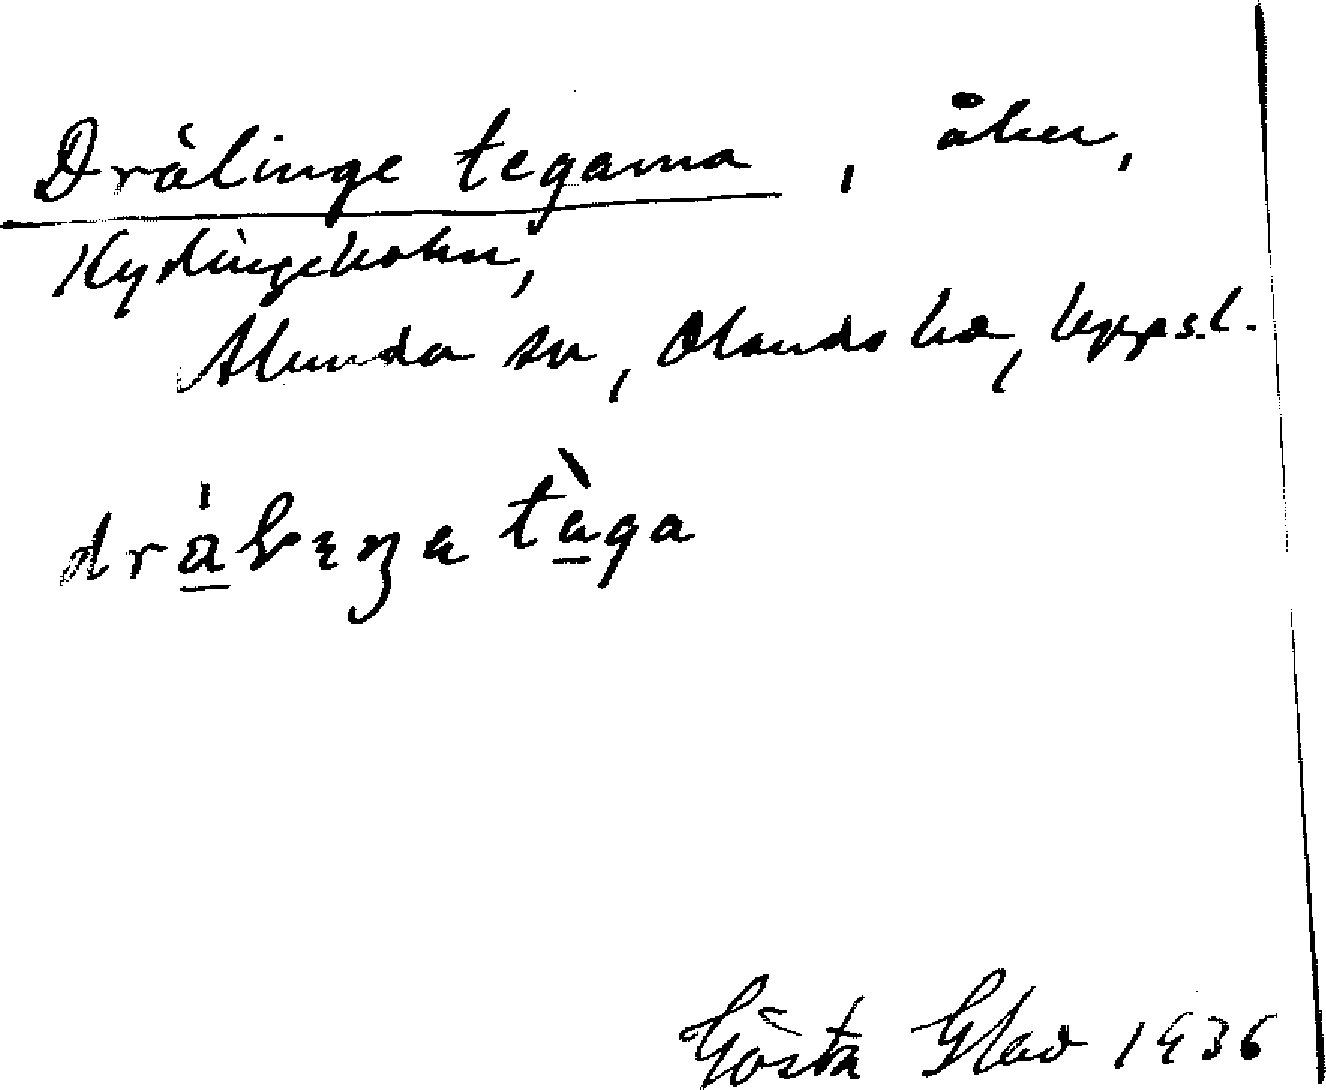 Drålinge tegarna, åker,
Kydingeholm,
Alunda sn, Olands hd, Uppsl.
Gösta Glad 1936